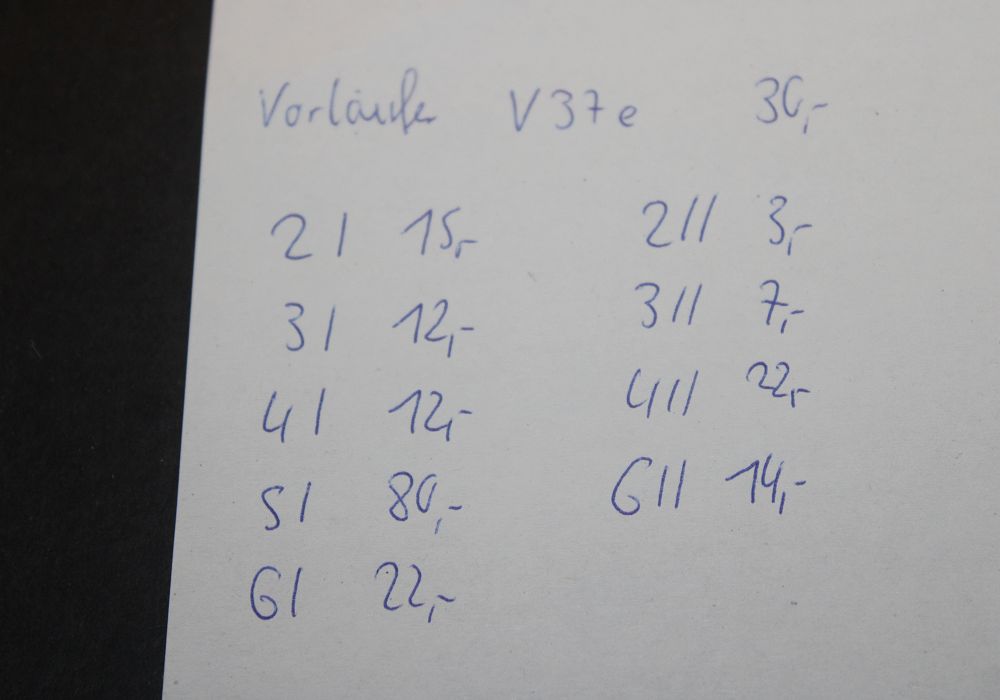 Vorläufer V37e 30,-
2I 15,- 2II 3,-
3I 12,- 3II 7,-
4I 12,- 4II 22,-
5I 80,- 6II 14,-
6I 22,-